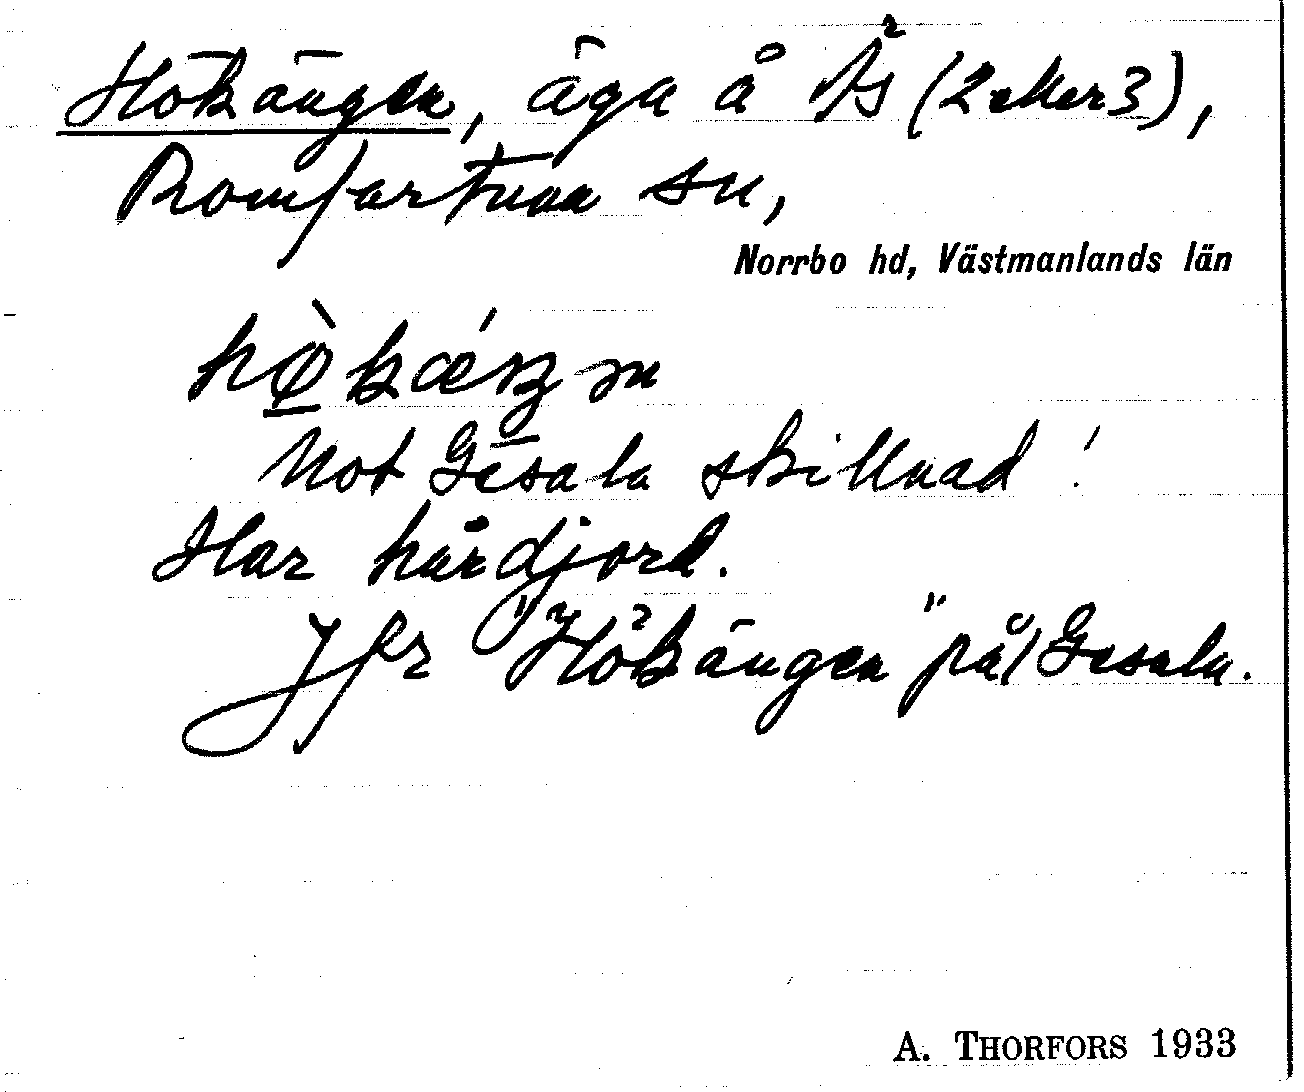 Hökängen, äga å Ås (2 eller 3),
Romfartuna sn,
Norrbo hd, Västmanlands län
hø̀kǽŋən
Mot Gesala skillnad!
Har hårdjord.
Jfr "Hökängen" på Gesala.
A. THORFORS 1933